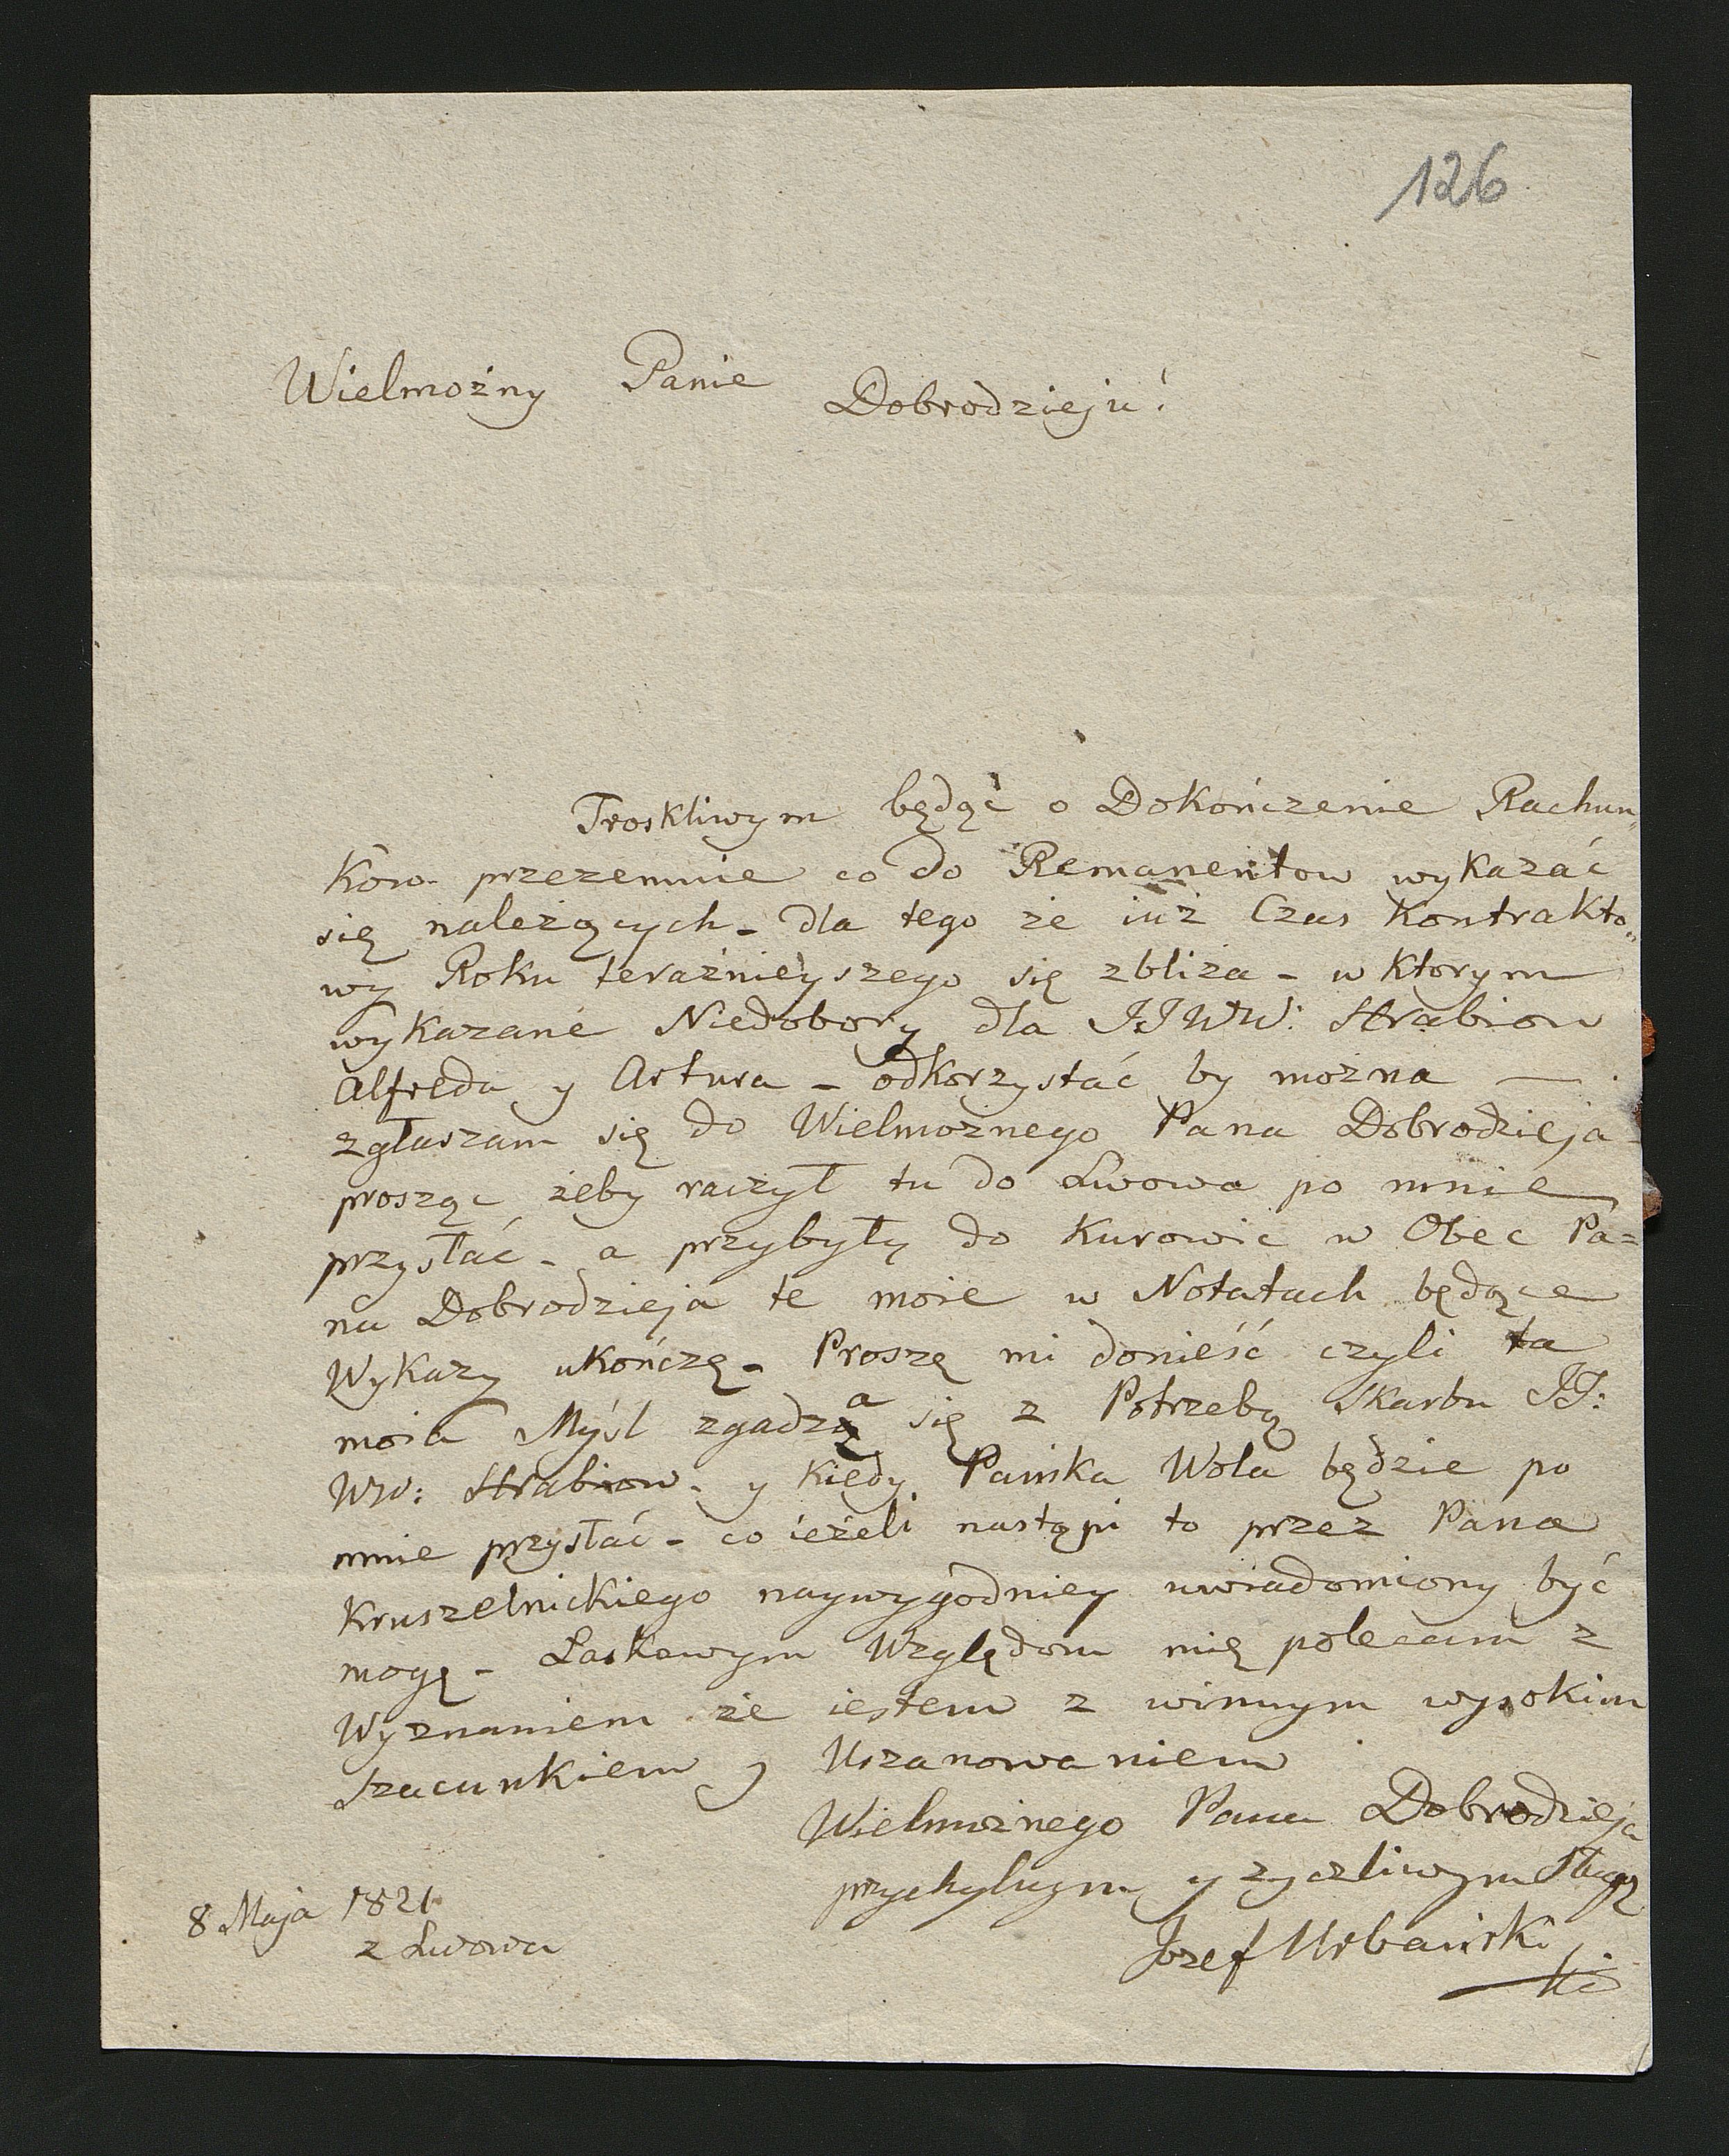 126
Wielmożny Panie Dobrodzieju!
Troskliwym będąc o Dokończenie Rachun„
ków przezemnie co do Remanentow wykazać
się należących - dla tego że iuż Czas Kontrakto„
wy Roku teraźnieyszego się zbliża - w ktorym
wykazane Niedobory dla JJWW: Hrabiow
Alfreda y Artura - odkorzystać by można —
zgłaszam się do Wielmożnego Pana Dobrodzieja
prosząc żeby raczył tu do Lwowa po mnie
przysłać - a przybyły do Kurowic w Obec Pa=
na Dobrodzieja te moie w Notatach będące
Wykazy ukończę - Proszę mi donieść czyli ta
moia Myśl zgadza się z Potrzebą Skarbu JJ:
WW: Hrabiow - y kiedy Pańska Wola będzie po
mnie przysłać - co ieżeli nastąpi to przez Pana
Kruszelnickiego naywygodniey uwiadomiony być
mogę - Łaskawym Względom mię polecam z
Wyznaniem że iestem z winnym wysokim
Szacunkiem y Uszanowaniem
Wielmożnego Pana Dobrodzieja
przychylnym y życzliwym Sługą
Jozef Urbański
8 Maja 1821
z Lwowa